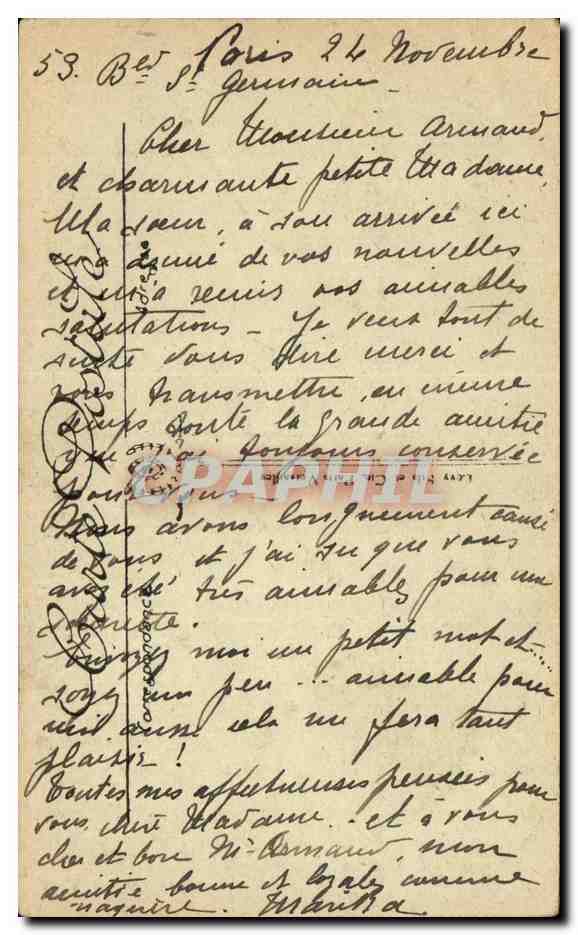 Paris 24 Novembre
53. Bed St Germain
Cher Monsieur Armand,
et charmante petite Madame,
Ma soeur, à son arrivée ici
m'a donné de vos nouvelles
et m'a remis vos aimables
salutations – Je veux tout de
suite vous dire merci et
vous transmettre, en même
temps toute la grande amitié
que j'ai toujours conservée
pour vous.
Nous avons longuement causé
de vous et j'ai su que vous
avez été très aimables pour ma
Envoyez moi un petit mot et.....
soyez un peu ... aimable pour
moi aussi cela me fera tant
plaisir !
Toutes mes affectueuses pensées pour
vous, chère Madame. et à vous
cher et bon Mr Armand, mon
amitié bonne et loyale comme
naguère. Marika.
Carte Postale
Correspondance
Adresse
Lévy Fils et Cie, Paris
CPAPHIL